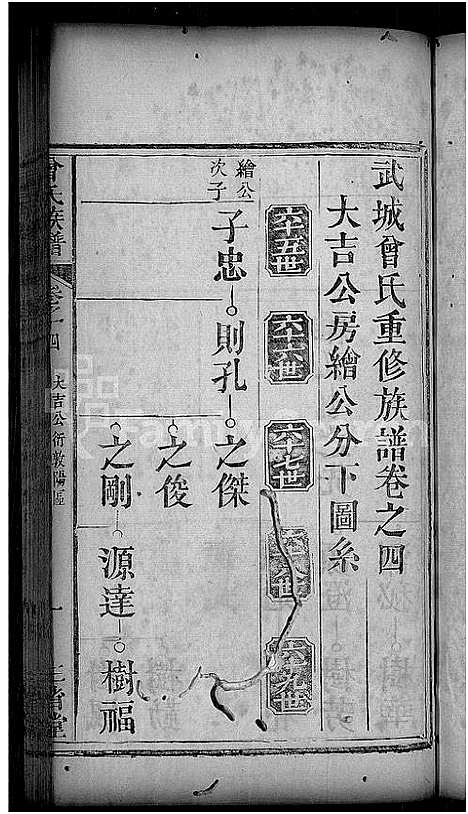 武城曾氏重修族譜卷之四
大吉公房繪公分下圖系
六十五世
六十六世
六十七世
六十八世
六十九世
繪公
次子
子忠
則孔
之傑
之俊
之剛
源達
樹福
曾氏族譜
卷之四
大吉公衍敦陽區
一
三省堂